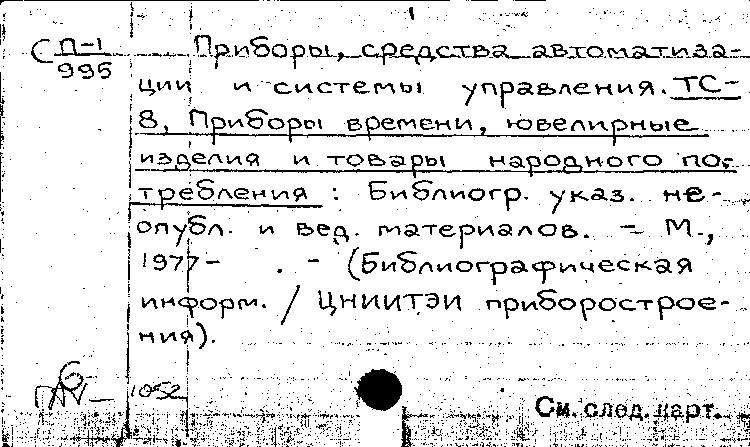 С П-1
995
Приборы, средства автоматиза-
ции и системы управления. ТС-
8, Приборы времени, ювелирные
изделия и товары народного по-
требления : Библиогр. указ. не-
опубл. и вед. материалов. – М.,
1977- . – (Библиографическая
информ. / ЦНИИТЭИ приборострое-
ния).
1052
См. след. карт.